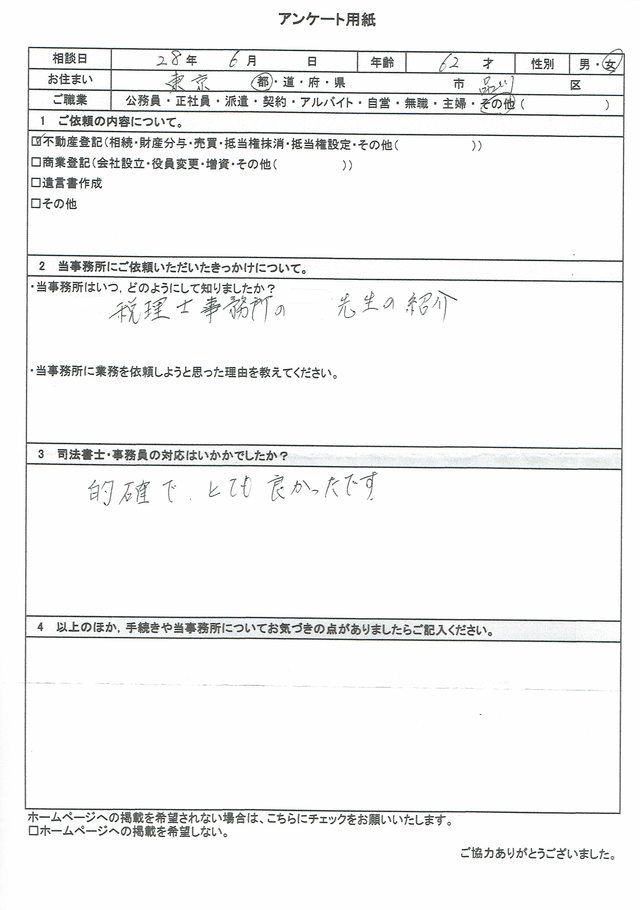 アンケート用紙
相談日 28年 6月 日 年齢 62 才 性別 男・女
お住まい 東京 都・道・府・県 市 品川 区
ご職業 公務員・正社員・派遣・契約・アルバイト・自営・無職・主婦・その他( )
1 ご依頼の内容について。
☑不動産登記(相続・財産分与・売買・抵当権抹消・抵当権設定・その他( ))
□商業登記(会社設立・役員変更・増資・その他( ))
□遺言書作成
□その他
2 当事務所にご依頼いただいたきっかけについて。
・当事務所はいつ,どのようにして知りましたか?
税理士事務所の 先生の紹介
・当事務所に業務を依頼しようと思った理由を教えてください。
3 司法書士・事務員の対応はいかかでしたか?
的確で、とても良かったです
4 以上のほか,手続きや当事務所についてお気づきの点がありましたらご記入ください。
ホームページへの掲載を希望されない場合は、こちらにチェックをお願いいたします。
□ホームページへの掲載を希望しない。
ご協力ありがとうございました。